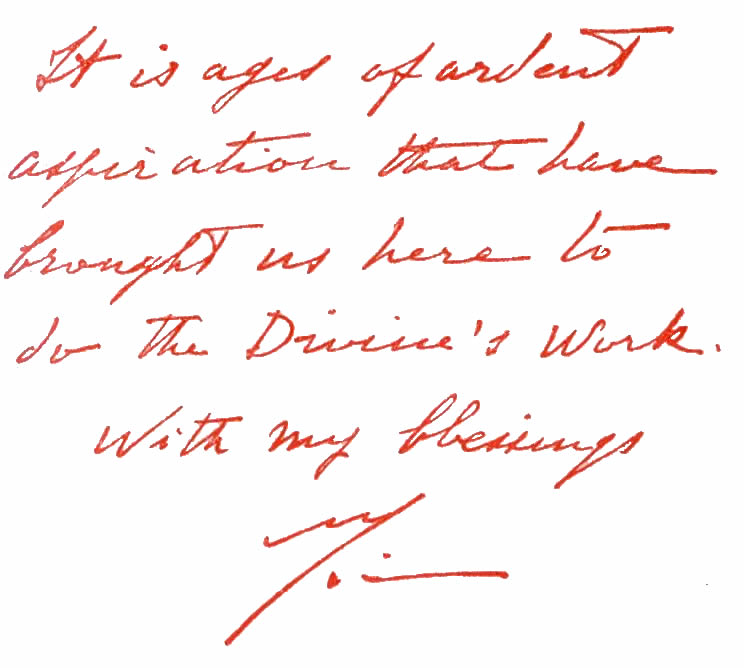 It is ages of ardent
aspiration that have
brought us here to
do the Divine's Work.
With my blessings